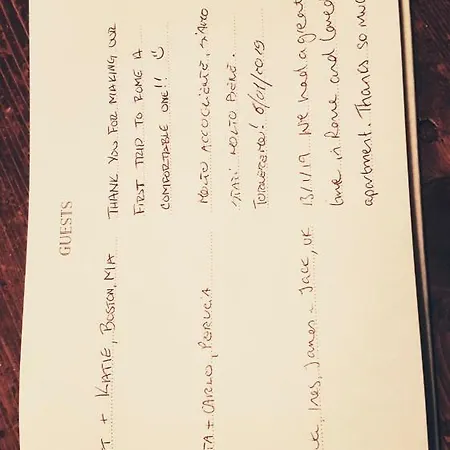 GUESTS
+ KATIE, BOSTON, MA
THANK YOU FOR MAKING OUR
FIRST TRIP TO ROME A
COMFORTABLE ONE!! ☺
+ CARLO, PERUGIA
MOLTO ACCOGLIENTE, SIAMO
STATI MOLTO BENE.
TORNEREMO! 6/01/2019
Ines, James - Jack, UK
13/1/19 We had a great
time in Rome and loved
apartment. Thanks so much